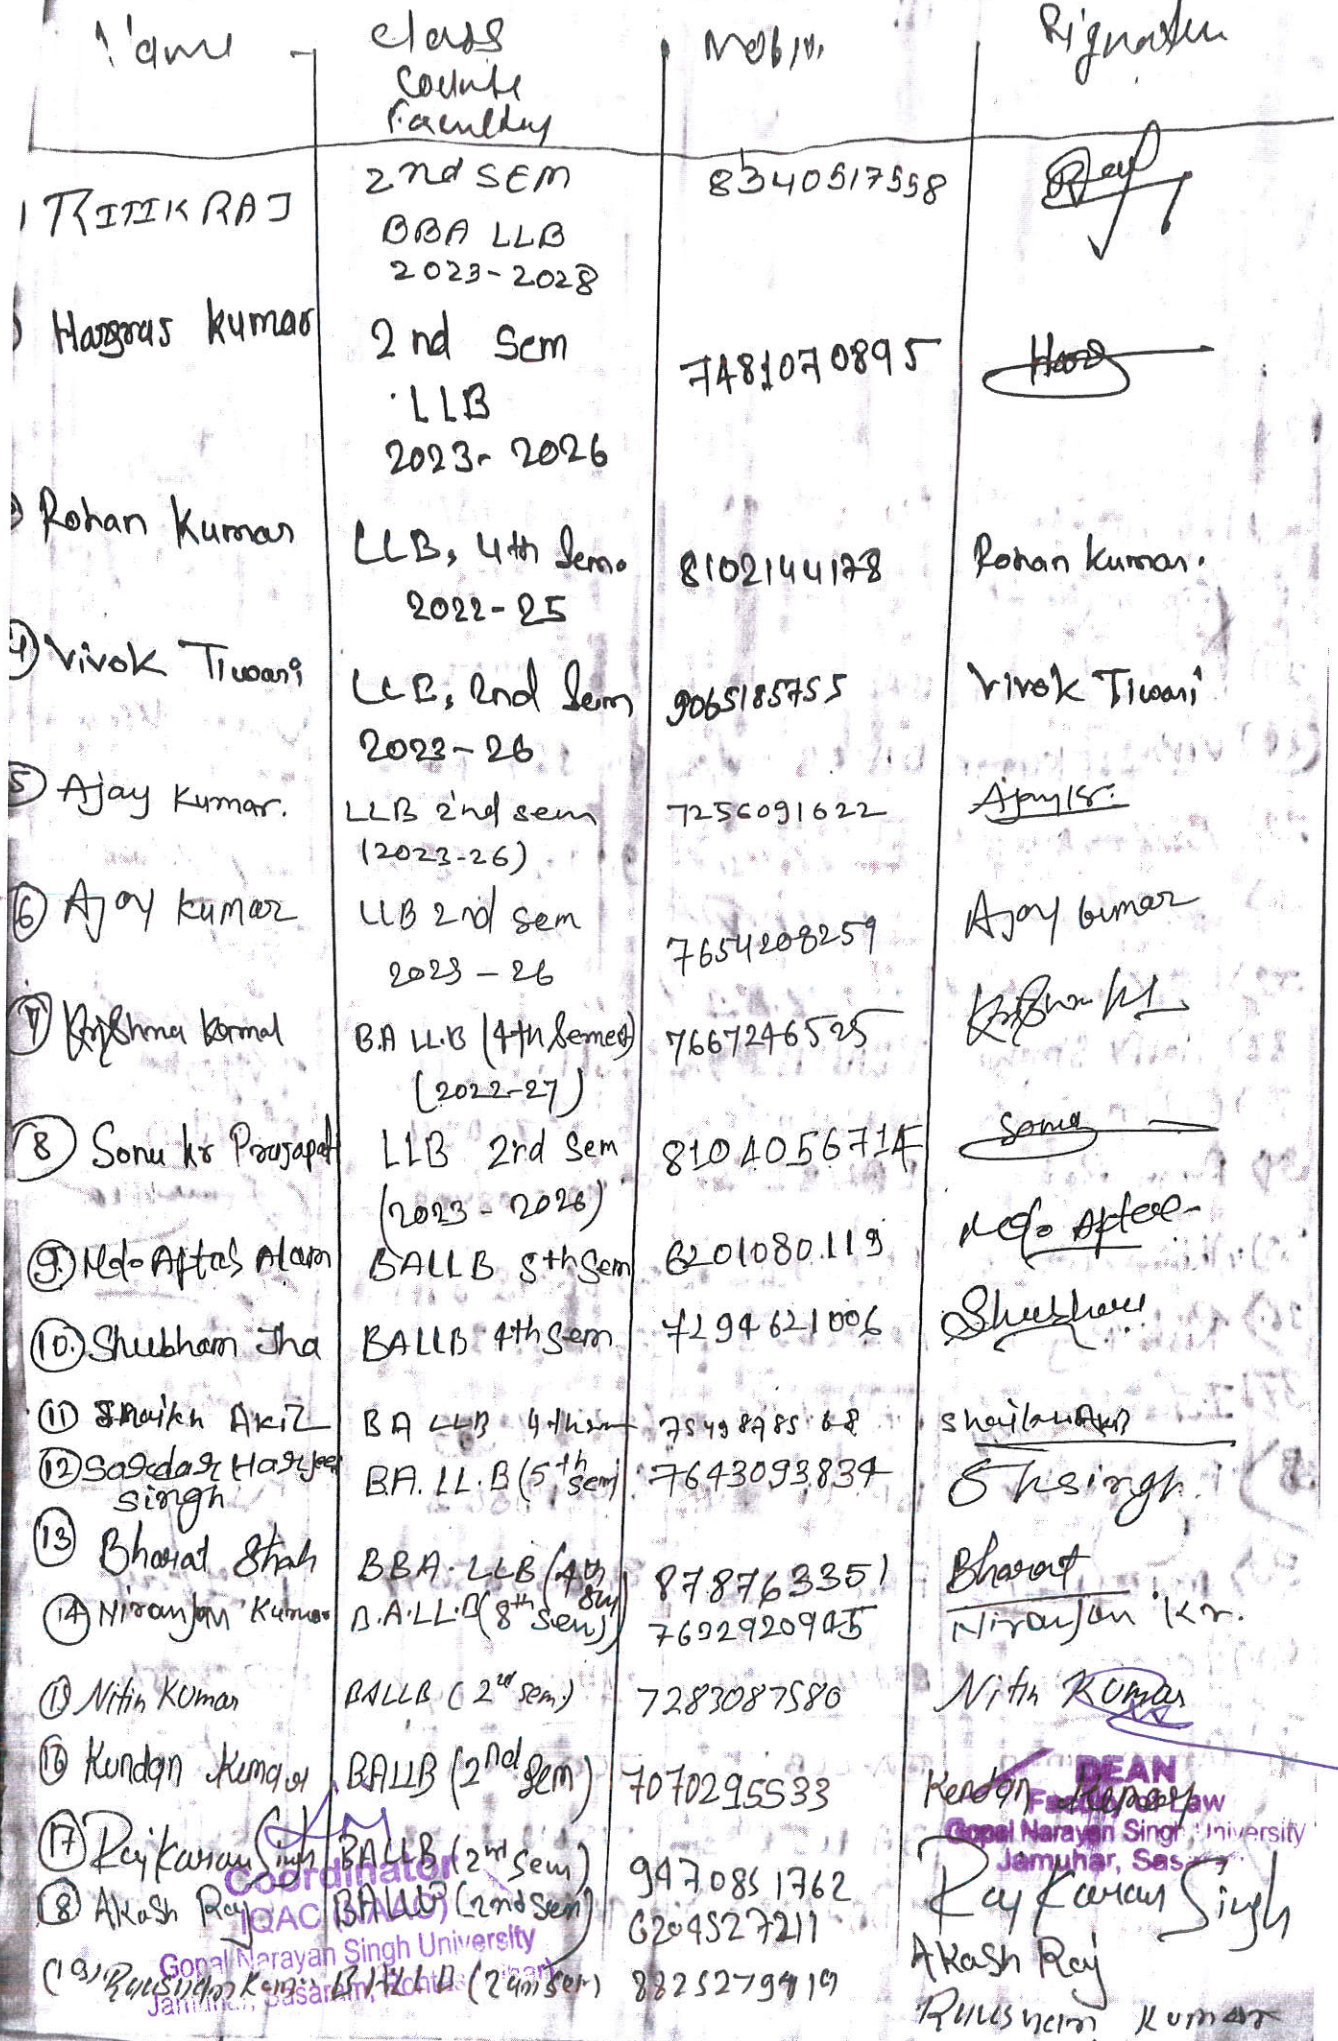 Name
class
Course
Faculty
Mob no.
Signature
1 RITIK RAJ
2nd SEM
BBA LLB
2023-2028
8340517558
Kumar
2nd Sem
LLB
2023-2026
7481070895
Rohan Kumar
LLB, 4th Sem.
2022-25
8102144178
Rohan Kumar.
4 Vivek Tiwari
LLB, 2nd Sem
2023-26
9065185755
Vivek Tiwari
5 Ajay Kumar.
LLB 2nd sem
(2023-26)
7256091622
Ajay Kr.
6 Ajay Kumar
LLB 2nd sem
2023-26
7654208259
Ajay Kumar
7 Krishna
B.A LL.B (4th Semest)
(2022-27)
7667246525
8 Sonu kr Prajapat
LLB 2nd Sem
(2023-2026)
8104056714
Sonu
9. Md. Aftab Alam
BALLB 8th Sem
6201080119
Md. Aftab
10. Shubham Jha
BALLB 4th Sem
7294621006
Shubham
11 Shaikh Akil
BA LLB 4th sem
Shaikh Akil
12 Sardar Harjeet
singh
B.A. LL.B (5th sem)
7643093834
SHsingh
13 Bharat Shah
BBA. LLB (4th
Sem)
8787633351
Bharat
14 Niranjan Kumar
B.A.LL.B (8th Sem)
7632920945
Niranjan Kr.
15 Nitin Kumar
BALLB (2nd sem)
7283087580
Nitin Kumar
16 Kundan Kumar
BALLB (2nd Sem)
7070295533
Kundan Kumar
DEAN
Faculty of Law
Gopal Narayan Singh University
Jamuhar, Sas
17 Raj Karan Singh
BALLB (2nd Sem)
9470851762
Raj Karan Singh
18 Akash Raj
BALLB (2nd Sem)
6204527211
Akash Raj
Coordinator
IQAC (NAAC)
Gopal Narayan Singh University
(19)
BALLB (2nd Sem)
8825279919
Kumar